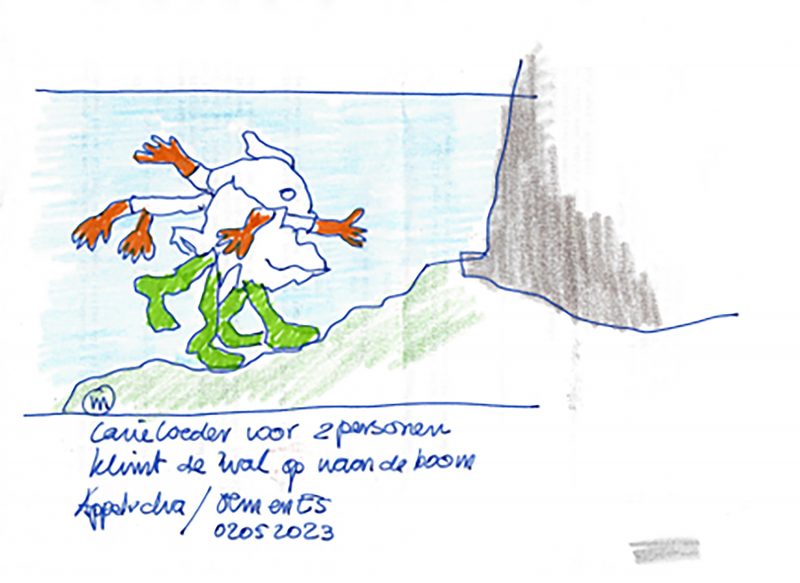 m
voor 2 personen
klimt de wal op naar de boom
Appelscha / Olm en Es
02052023